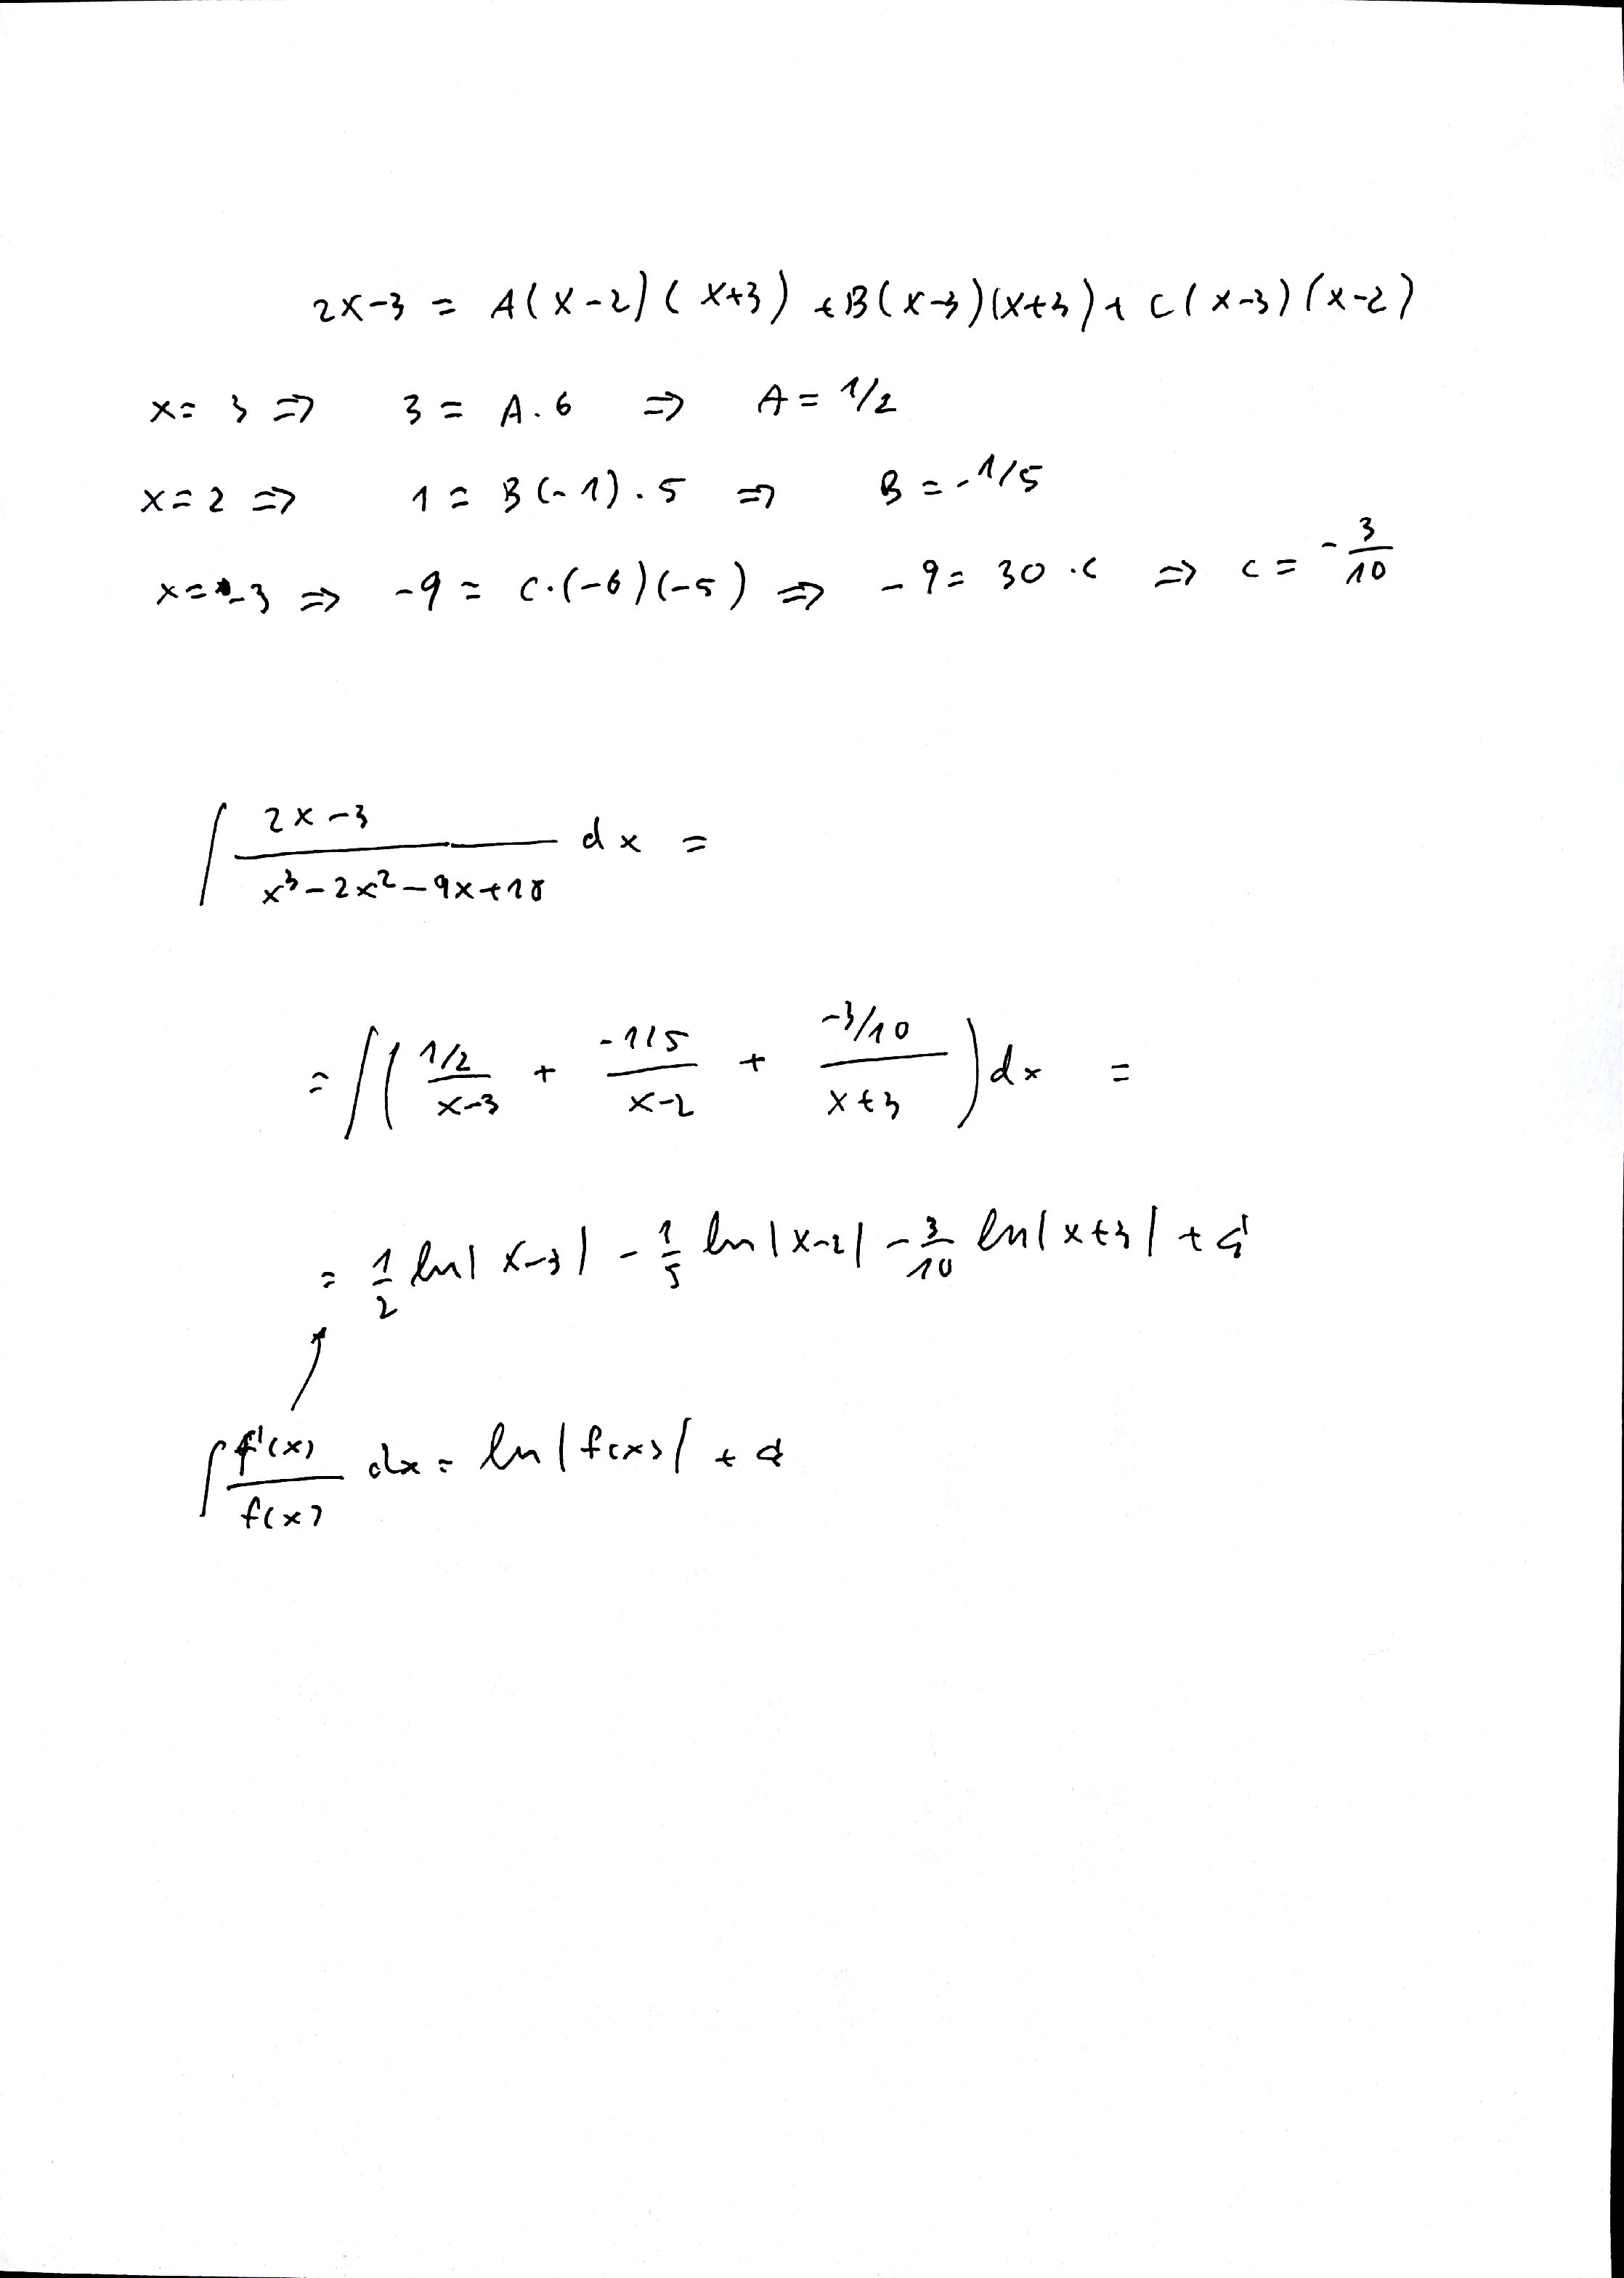 2x-3 = A(x-2)(x+3) + B(x-3)(x+3) + C(x-3)(x-2)
x = 3 ⇒ 3 = A . 6 ⇒ A = 1/2
x = 2 ⇒ 1 = B(-1) . 5 ⇒ B = -1/5
x = -3 ⇒ -9 = C.(-6)(-5) ⇒ -9 = 30 . C ⇒ C = -3/10
∫ (2x-3)/(x³-2x²-9x+18) dx =
= ∫ ( (1/2)/(x-3) + (-1/5)/(x-2) + (-3/10)/(x+3) ) dx =
= 1/2 ln|x-3| - 1/5 ln|x-2| - 3/10 ln|x+3| +
∫ f'(x)/f(x) dx = ln|f(x)| +